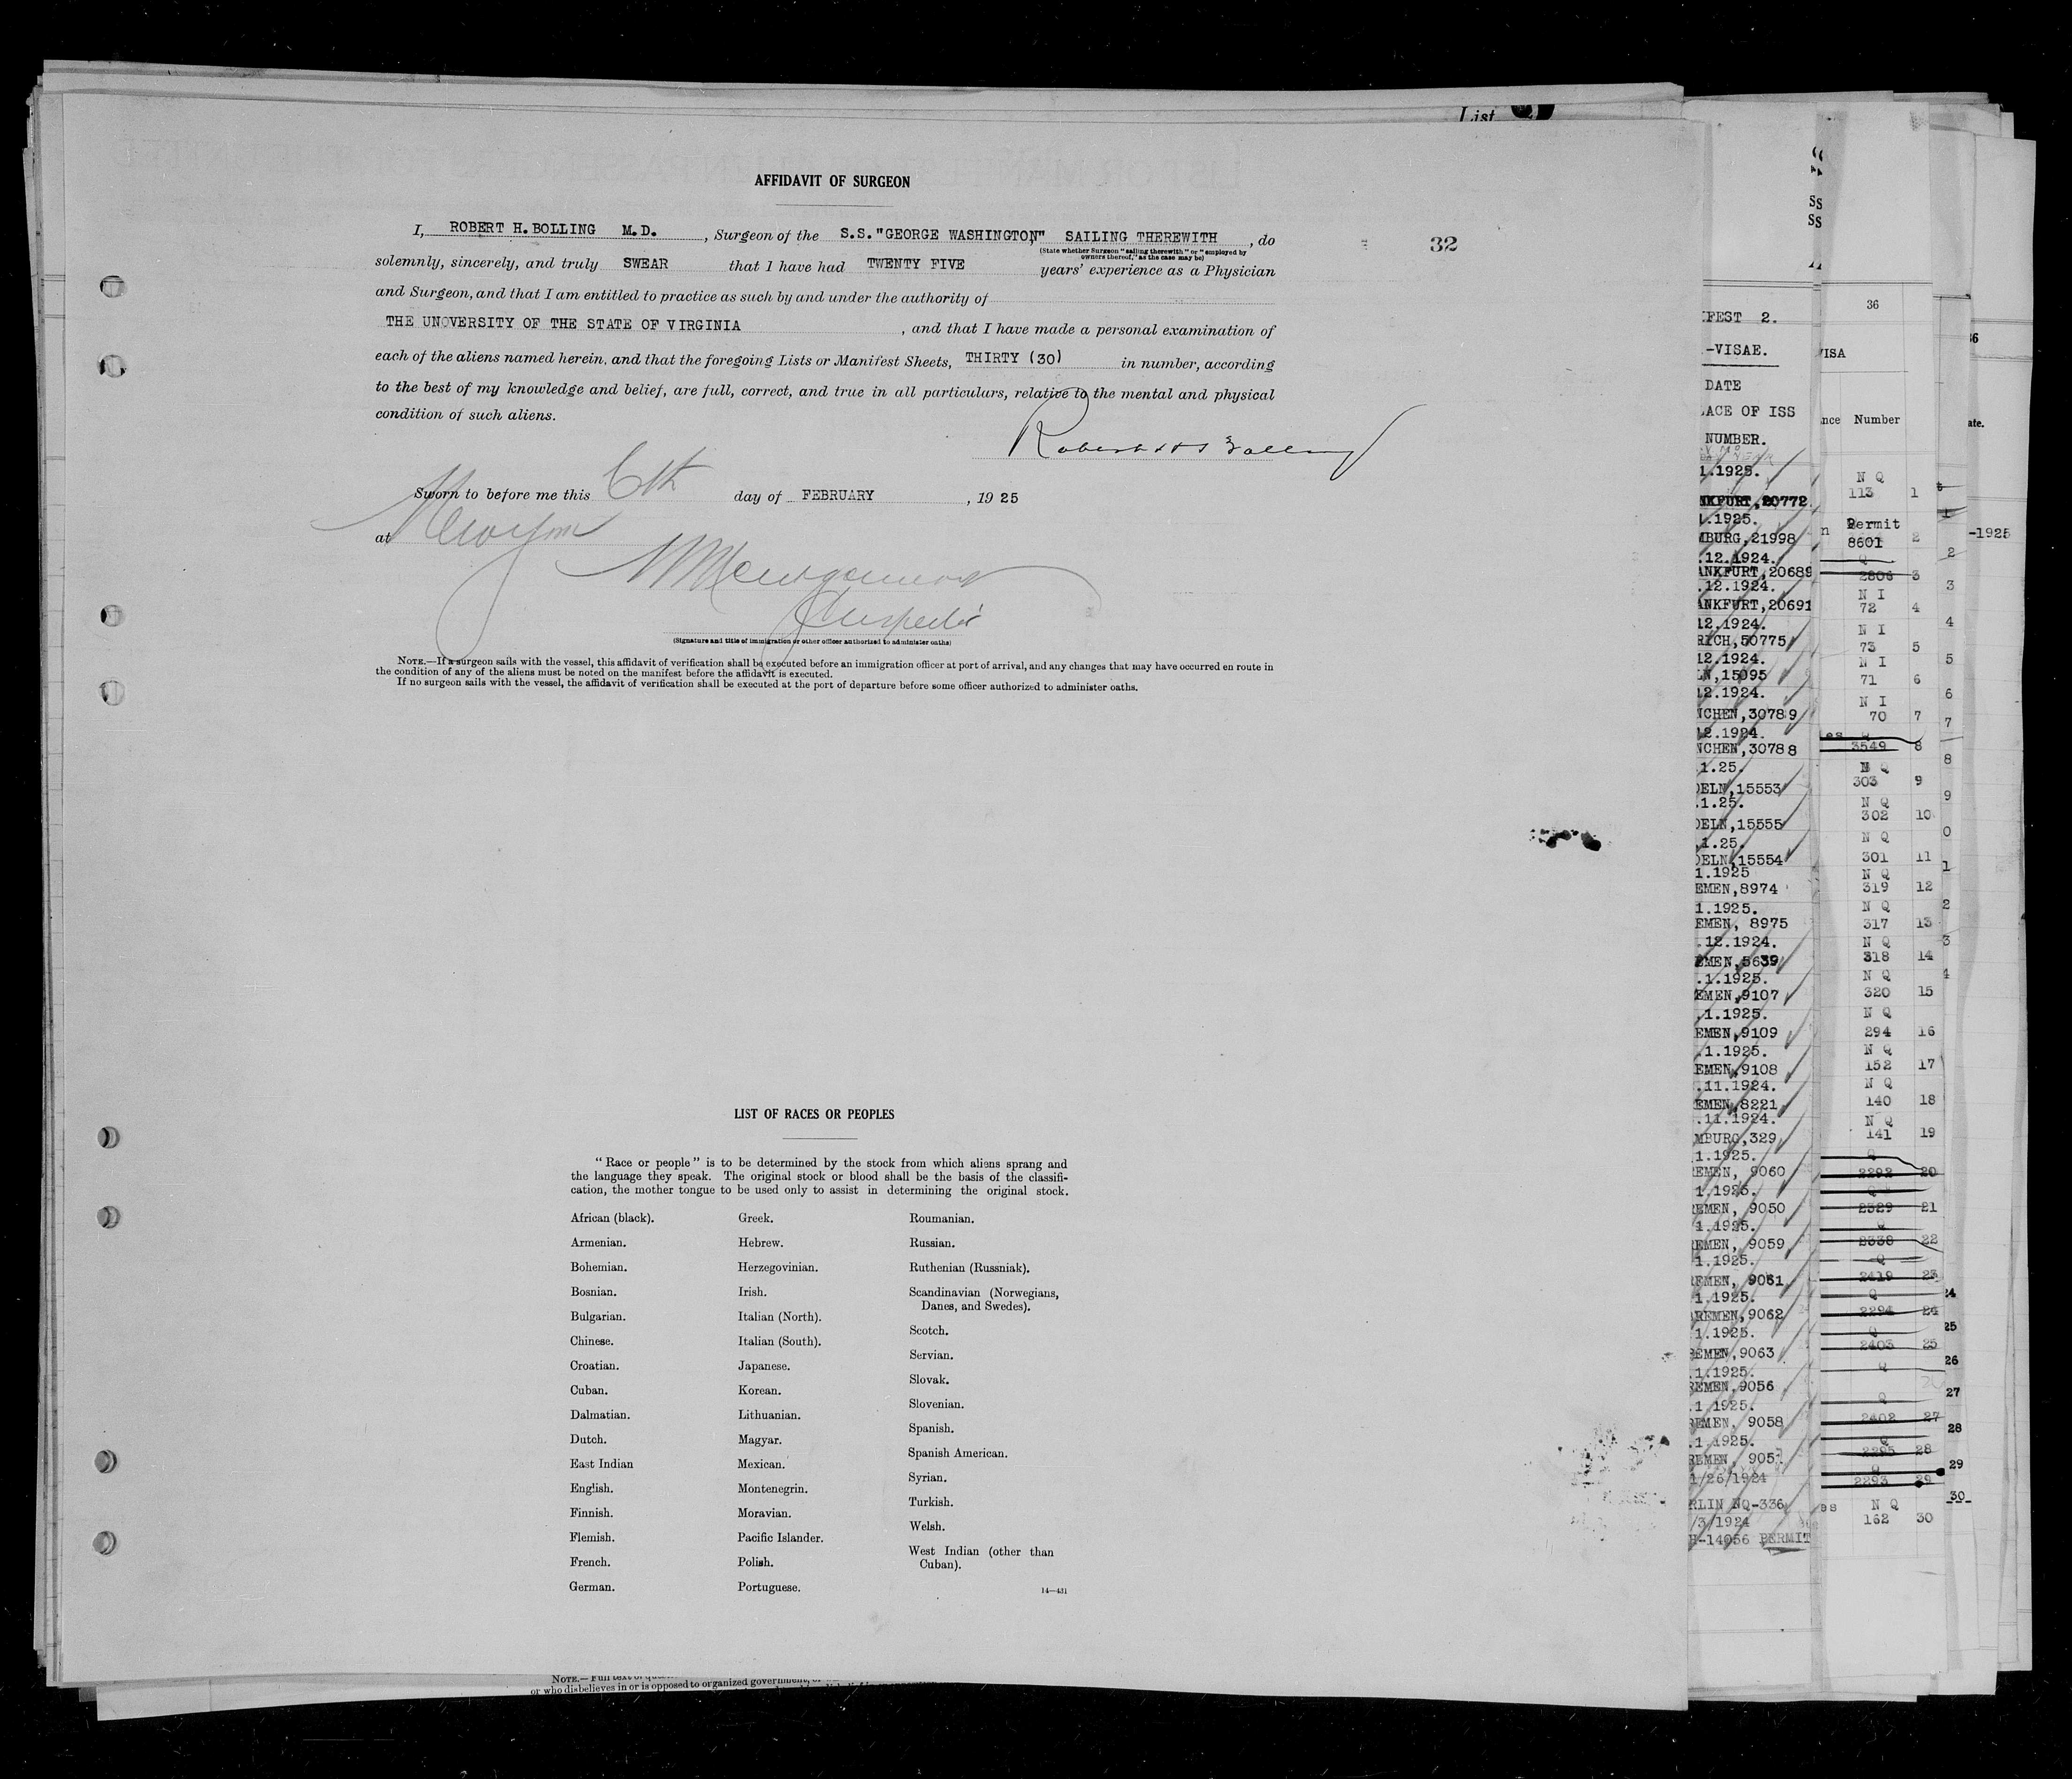 List
AFFIDAVIT OF SURGEON
32
I, ROBERT H. BOLLING M.D. , Surgeon of the S.S. "GEORGE WASHINGTON," SAILING THEREWITH , do
(State whether Surgeon "sailing therewith" or "employed by
owners thereof," as the case may be)
solemnly, sincerely, and truly SWEAR that I have had TWENTY FIVE years' experience as a Physician
and Surgeon, and that I am entitled to practice as such by and under the authority of
THE UNOVERSITY OF THE STATE OF VIRGINIA , and that I have made a personal examination of
each of the aliens named herein, and that the foregoing Lists or Manifest Sheets, THIRTY (30) in number, according
to the best of my knowledge and belief, are full, correct, and true in all particulars, relative to the mental and physical
condition of such aliens.
Robert H Bolling
Sworn to before me this 6th day of FEBRUARY , 19 25
at
Inspector
(Signature and title of immigration or other officer authorized to administer oaths)
NOTE.—If a surgeon sails with the vessel, this affidavit of verification shall be executed before an immigration officer at port of arrival, and any changes that may have occurred en route in
the condition of any of the aliens must be noted on the manifest before the affidavit is executed.
If no surgeon sails with the vessel, the affidavit of verification shall be executed at the port of departure before some officer authorized to administer oaths.
LIST OF RACES OR PEOPLES
"Race or people" is to be determined by the stock from which aliens sprang and
the language they speak. The original stock or blood shall be the basis of the classifi-
cation, the mother tongue to be used only to assist in determining the original stock.
African (black).
Armenian.
Bohemian.
Bosnian.
Bulgarian.
Chinese.
Croatian.
Cuban.
Dalmatian.
Dutch.
East Indian
English.
Finnish.
Flemish.
French.
German.
Greek.
Hebrew.
Herzegovinian.
Irish.
Italian (North).
Italian (South).
Japanese.
Korean.
Lithuanian.
Magyar.
Mexican.
Montenegrin.
Moravian.
Pacific Islander.
Polish.
Portuguese.
Roumanian.
Russian.
Ruthenian (Russniak).
Scandinavian (Norwegians,
Danes, and Swedes).
Scotch.
Servian.
Slovak.
Slovenian.
Spanish.
Spanish American.
Syrian.
Turkish.
Welsh.
West Indian (other than
Cuban).
14—431
or who disbelieves in or is opposed to organized government,
FEST 2.
-VISAE.
DATE
ACE OF ISS
NUMBER.
1.1925.
NKFURT,20772
1.1925.
MBURG,21998
.12.1924.
ANKFURT,20689
.12.1924.
ANKFURT,20691
12.1924.
RICH,50775
12.1924.
LN,15095
12.1924.
NCHEN,30789
12.1924.
NCHEN,30788
.1.25.
OELN,15553
.1.25.
OELN,15555
.1.25.
OELN,15554
1.1925
EMEN,8974
1.1925.
EMEN, 8975
.12.1924.
EMEN,5639
.1.1925.
EMEN,9107
.1.1925.
EMEN,9109
.1.1925.
EMEN,9108
.11.1924.
EMEN,8221
.11.1924.
MBURG,329
1.1925.
EMEN, 9060
1.1925.
REMEN, 9050
1.1925.
REMEN, 9059
1.1925.
REMEN, 9061
1.1925.
REMEN,9062
1.1925.
REMEN,9063
1.1925.
REMEN,9056
.1 1925.
REMEN, 9058
.1 1925.
REMEN, 905
1/26/1924
RLIN NQ-336
/3/1924
H-14056 PERMIT
SS
SS
36
VISA
nce Number
N Q
113 1
Permit
8601 2
Q
2806 3
N I
72 4
N I
73 5
N I
71 6
N I
70 7
3549 8
N Q
303 9
N Q
302 10
N Q
301 11
N Q
319 12
N Q
317 13
N Q
318 14
N Q
320 15
N Q
294 16
N Q
152 17
N Q
140 18
N Q
141 19
Q
2292 20
Q
2329 21
Q
2338 22
Q
2419 23
Q
2294 24
Q
2403 25
Q
Q
2402 27
Q
2295 28
Q
2293 29
N Q
162 30
1
2
3
4
5
6
7
8
9
0
1
2
3
4
24
25
26
27
28
29
30
ate.
-1925